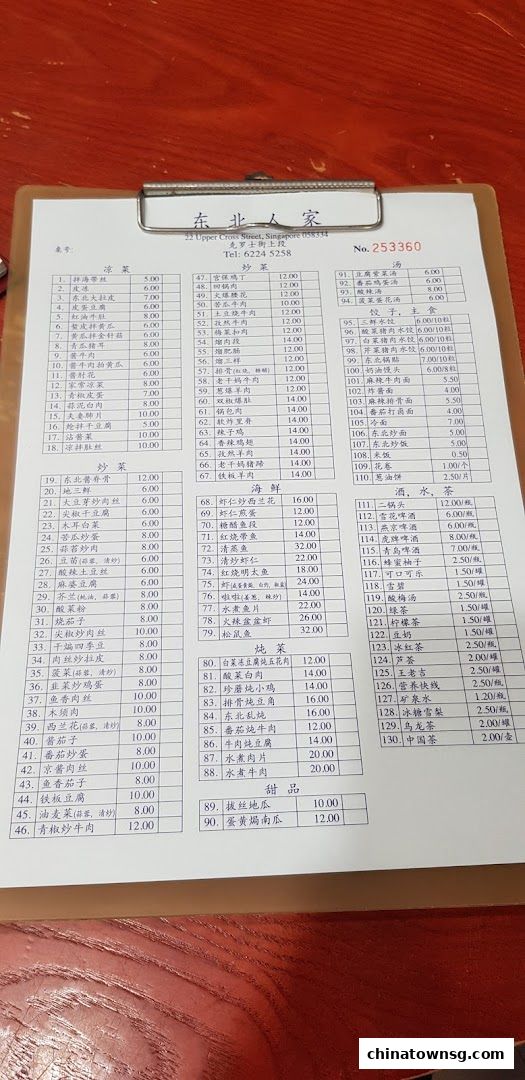 东北人家
22 Upper Cross Street, Singapore 058334
克罗士街上段
Tel: 6224 5258
桌号:
No. 253360
凉 菜
1. 拌海带丝 5.00
2. 皮冻 6.00
3. 东北大拉皮 7.00
4. 皮蛋豆腐 6.00
5. 红油牛肚 8.00
6. 蜇皮拌黄瓜 6.00
7. 黄瓜拌金针菇 6.00
8. 黄瓜猪耳 8.00
9. 酱牛肉 6.00
10. 酱牛肉拍黄瓜 6.00
11. 酱肘花 6.00
12. 家常凉菜 8.00
13. 青椒皮蛋 7.00
14. 蒜泥白肉 8.00
15. 夫妻肺片 10.00
16. 炝拌干豆腐 5.00
17. 沾酱菜 10.00
18. 凉拌肚丝 10.00
炒 菜
19. 东北酱脊骨 12.00
20. 地三鲜 6.00
21. 大豆芽炒肉丝 6.00
22. 尖椒干豆腐 6.00
23. 木耳白菜 6.00
24. 苦瓜炒蛋 8.00
25. 蒜苔炒肉 8.00
26. 豆苗(蒜蓉, 清炒) 6.00
27. 酸辣土豆丝 6.00
28. 麻婆豆腐 6.00
29. 芥兰(蚝油, 蒜蓉) 8.00
30. 酸菜粉 8.00
31. 烧茄子 8.00
32. 尖椒炒肉丝 10.00
33. 干煸四季豆 8.00
34. 肉丝炒拉皮 8.00
35. 菠菜(蒜蓉, 清炒) 8.00
36. 韭菜炒鸡蛋 8.00
37. 鱼香肉丝 10.00
38. 木须肉 10.00
39. 西兰花(蒜蓉, 清炒) 8.00
40. 酱茄子 10.00
41. 番茄炒蛋 8.00
42. 京酱肉丝 10.00
43. 鱼香茄子 8.00
44. 铁板豆腐 10.00
45. 油麦菜(蒜蓉, 清炒) 8.00
46. 青椒炒牛肉 12.00
炒 菜
47. 宫保鸡丁 12.00
48. 回锅肉 12.00
49. 火爆腰花 12.00
50. 苦瓜牛肉 10.00
51. 土豆烧牛肉 12.00
52. 孜然牛肉 12.00
53. 梅菜扣肉 12.00
54. 熘肉段 14.00
55. 熘肥肠 14.00
56. 熘三样 14.00
57. 排骨(红烧, 糖醋) 12.00
58. 老干妈牛肉 12.00
59. 葱爆羊肉 12.00
60. 双椒爆肚 14.00
61. 锅包肉 14.00
62. 软炸里脊 14.00
63. 辣子鸡 14.00
64. 香辣鸡翅 14.00
65. 孜然羊肉 14.00
66. 老干妈猪蹄 14.00
67. 铁板羊肉 14.00
海 鲜
68. 虾仁炒西兰花 16.00
69. 虾仁煎蛋 12.00
70. 糖醋鱼段 12.00
71. 红烧带鱼 14.00
72. 清蒸鱼 32.00
73. 清炒虾仁 22.00
74. 红烧明太鱼 18.00
75. 24.00
76. 啦啦(姜葱, 辣炒) 14.00
77. 水煮鱼片 22.00
78. 火辣盆盆虾 26.00
79. 松鼠鱼 32.00
炖 菜
80. 白菜冻豆腐炖五花肉 12.00
81. 酸菜白肉 14.00
82. 珍蘑炖小鸡 14.00
83. 排骨炖豆角 16.00
84. 东北乱炖 16.00
85. 番茄炖牛肉 12.00
86. 牛肉炖豆腐 14.00
87. 水煮肉片 20.00
88. 水煮牛肉 20.00
甜 品
89. 拔丝地瓜 10.00
90. 蛋黄焗南瓜 12.00
汤
91. 豆腐紫菜汤 6.00
92. 番茄鸡蛋汤 6.00
93. 酸辣汤 8.00
94. 菠菜蛋花汤 6.00
饺子, 主食
95. 三鲜水饺 6.00/10粒
96. 酸菜猪肉水饺 6.00/10粒
97. 白菜猪肉水饺 6.00/10粒
98. 芹菜猪肉水饺 6.00/10粒
99. 东北锅贴 7.00/10粒
100. 奶油馒头 6.00/8粒
101. 麻辣牛肉面 5.50
102. 炸酱面 4.00
103. 麻辣排骨面 5.50
104. 番茄打卤面 4.00
105. 冷面 7.00
106. 东北炒面 5.00
107. 东北炒饭 5.00
108. 米饭 0.50
109. 花卷 1.00/个
110. 葱油饼 2.50/片
酒, 水, 茶
111. 二锅头 12.00/瓶
112. 雪花啤酒 6.00/瓶
113. 燕京啤酒 6.00/瓶
114. 虎牌啤酒 8.00/瓶
115. 青岛啤酒 7.00/瓶
116. 蜂蜜柚子 2.50/瓶
117. 可口可乐 1.50/罐
118. 雪碧 1.50/罐
119. 酸梅汤 2.50/瓶
120. 绿茶 1.50/罐
121. 柠檬茶 1.50/罐
122. 豆奶 1.50/罐
123. 冰红茶 2.50/瓶
124. 芦荟 2.00/罐
125. 王老吉 2.50/罐
126. 营养快线 2.50/瓶
127. 矿泉水 1.20/瓶
128. 冰糖雪梨 2.50/瓶
129. 乌龙茶 2.00/罐
130. 中国茶 2.00/壶
chinatownsg.com